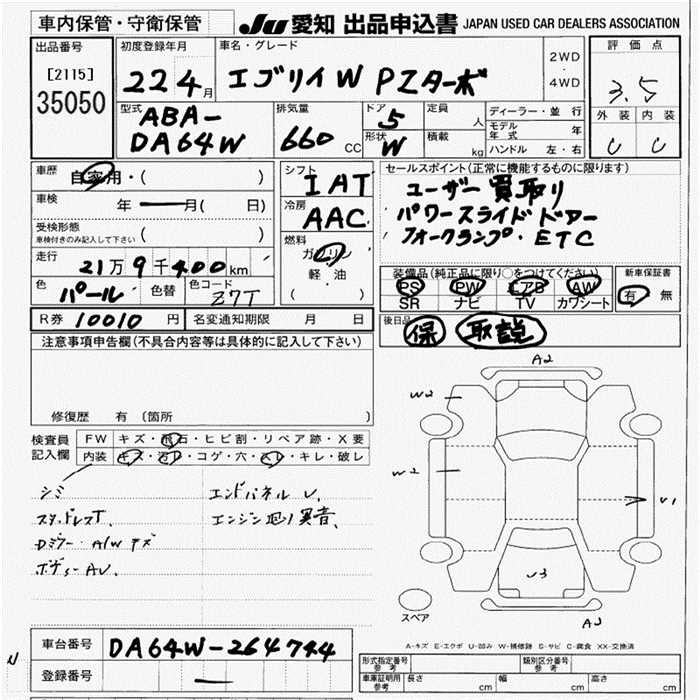 車内保管・守衛保管
JU 愛知 出品申込書 JAPAN USED CAR DEALERS ASSOCIATION
出品番号
[2115]
35050
初度登録年月
22 4月
車名・グレード
エブリイW PZターボ
2WD
・
4WD
評価点
3.5
外装 内装
C C
型式
ABA-
DA64W
排気量
660 CC
ドア
5
形状
W
定員
人
積載
kg
ディーラー・並行
モデル年式 年
ハンドル 左・右
車歴
自家用・( )
車検
年 ー 月( 日)
受検形態
車検付きのみ記入して下さい ( )
走行
21万9千400km
色
パール
色替
色コード
Z7T
シフト
IAT
冷房
AAC
燃料
ガソリン
軽・油
( )
セールスポイント(正常に機能するものに限ります)
ユーザー買取り
パワースライドドアー
フォークランプ・ETC
装備品(純正品に限り○をつけてください)
PS PW エアB AW
SR ナビ TV カワシート
新車保証書
有 無
R券 10010 円
名変通知期限 月 日
後日品
保 取説
注意事項申告欄(不具合内容等は具体的に記入して下さい)
修復歴 有 (箇所 )
検査員
記入欄
FW キズ・飛石・ヒビ割・リペア跡・X要
内装 キズ・汚レ・コゲ・穴・スレ・キレ・破レ
シミ
エンドパネルU、
エンジン廻り異音、
Dミラー・A/Wキズ
ボディーAU、
A2
W2
W2
U1
U3
スペア
A-キズ E-エクボ U-凹み W-補修跡 S-サビ C-腐食 XX-交換済
車台番号 DA64W-264744
登録番号 ー
形式指定番号
参考
類別区分番号
参考
車庫証明用
参考
長さ cm 幅 cm 高さ cm